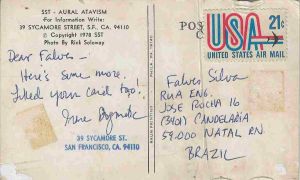 SST - AURAL ATAVISM
For Information Write:
39 SYCAMORE STREET, S.F., CA. 94110
© Copyright 1978 SST
Photo By Rick Soloway
Dear Falves —
Here's some more.
Liked your card too!
Irene Dogmatic
39 SYCAMORE ST.
SAN FRANCISCO, CA. 94110
POST
USA 21c
UNITED STATES AIR MAIL
Falves Silva
RUA ENG.
JOSE ROCHA 16
(3401) CANDELARIA
59.000 NATAL RN
BRAZIL